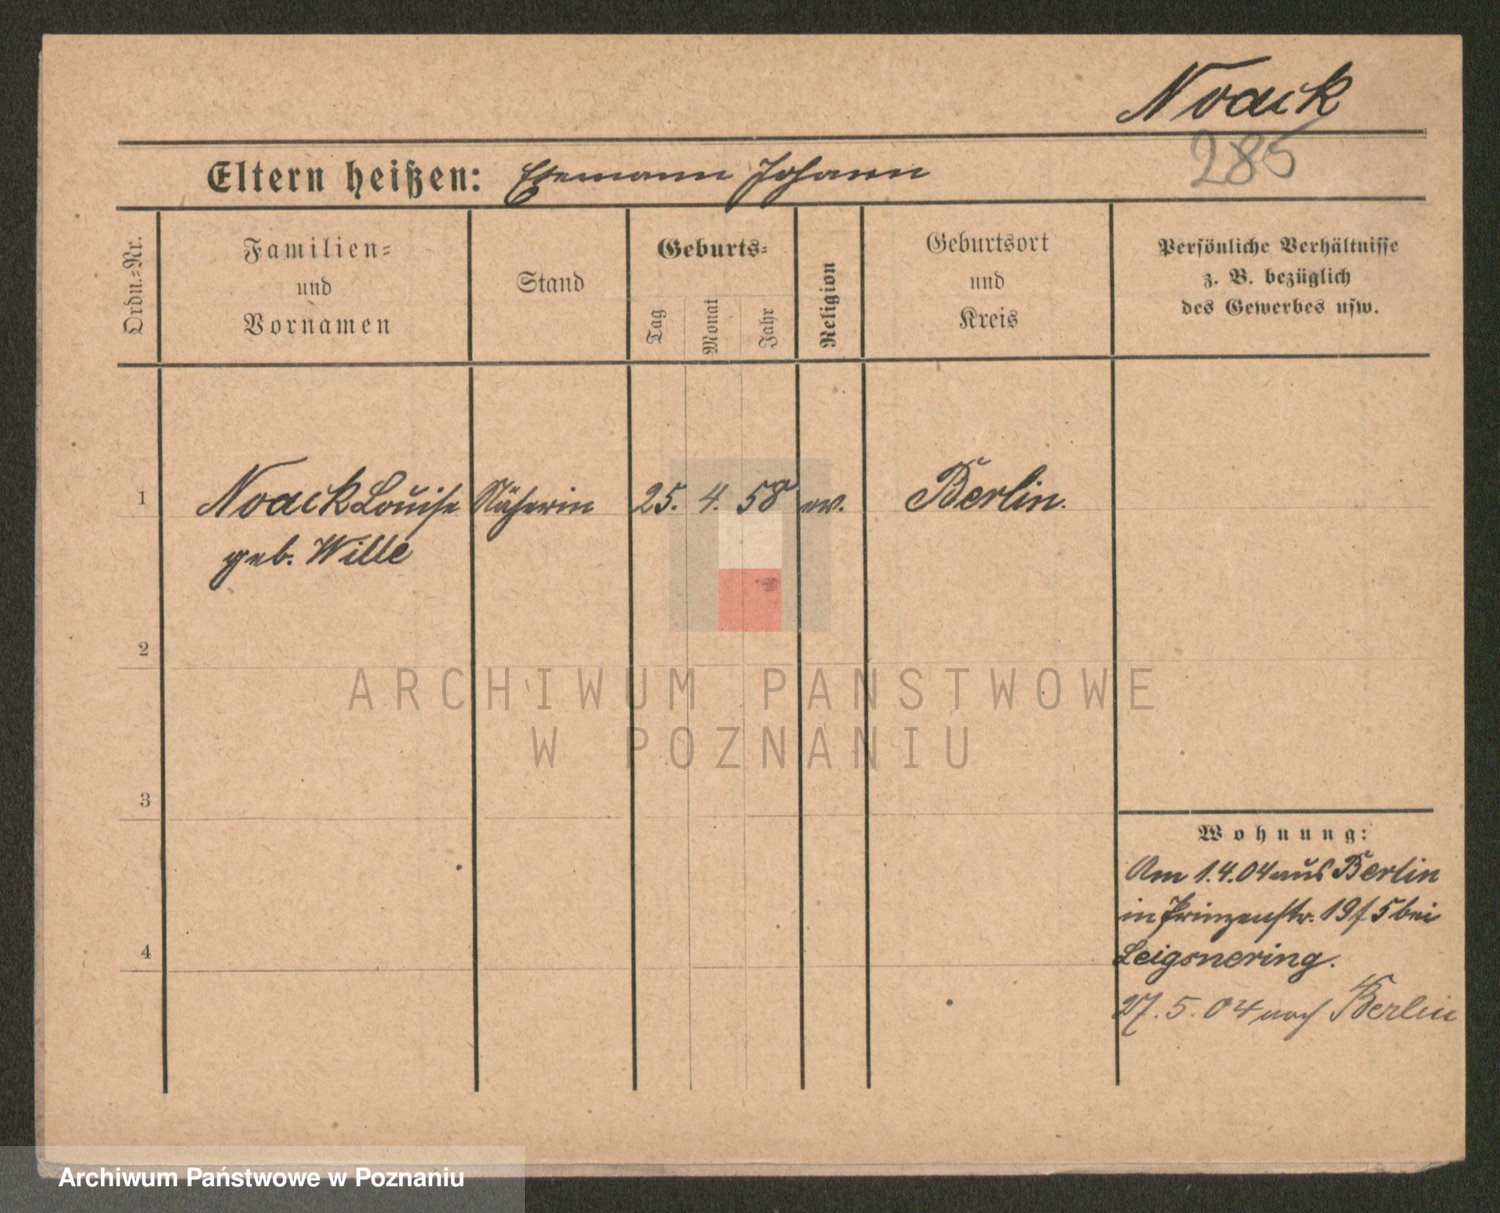 Noack
285
Eltern heißen: Ehemann Johann
Ordn.-Nr.
Familien-
und
Vornamen
Stand
Geburts-
Tag
Monat
Jahr
Religion
Geburtsort
und
Kreis
Persönliche Verhältnisse
z. B. bezüglich
des Gewerbes usw.
1 Noack Louise Näherin 25. 4. 58 ev. Berlin.
geb. Wille
2
ARCHIWUM PAŃSTWOWE
W POZNANIU
3
Wohnung:
Am 1.4.04 aus Berlin
in Prinzenstr. 19 5 bei
4
27.5.04 nach Berlin
Archiwum Państwowe w Poznaniu